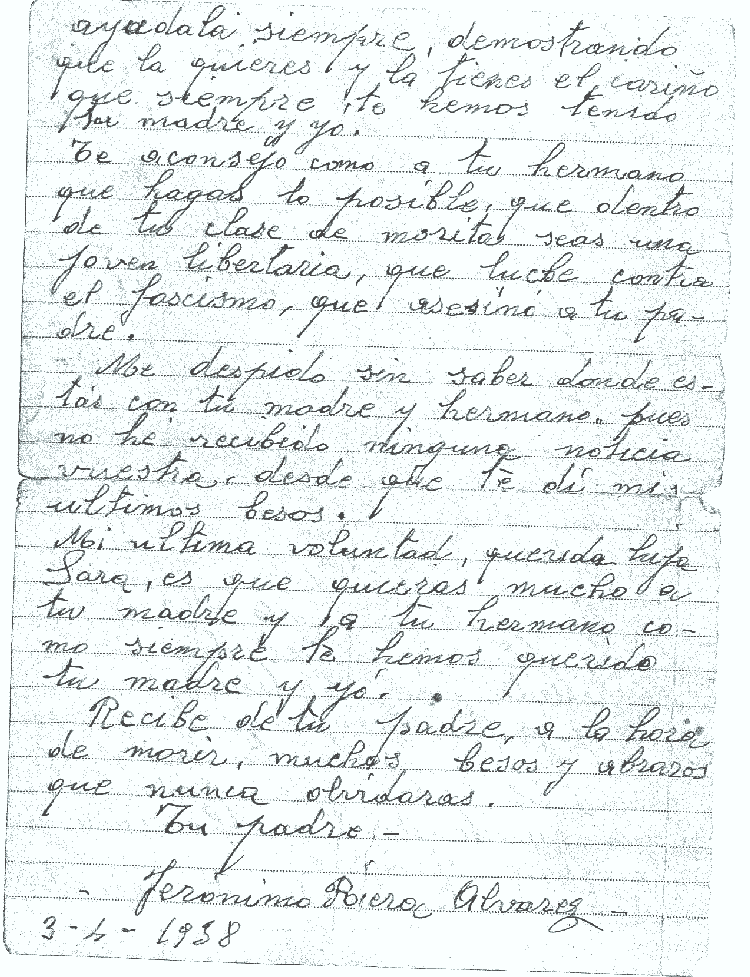 ayudala siempre, demostrando
que la quieres y la tienes el cariño
que siempre te hemos tenido
tu madre y yo.
Te aconsejo como a tu hermano
que hagas lo posible, que dentro
de tu clase de morita seas una
joven libertaria, que luche contra
el fascismo, que asesinó a tu pa-
dre.
Me despido sin saber donde es-
tás con tu madre y hermano, pues
no hé recibido ninguna noticia
vuestra, desde que te dí mis
ultimos besos.
Mi ultima voluntad, querida hija
Sara, es que quieras mucho a
tu madre y a tu hermano co-
mo siempre te hemos querido
tu madre y yó.
Recibe de tu padre, a la hora
de morir, muchos besos y abrazos
que nunca olvidaras.
Tu padre.-
- Jerónimo Riera Alvarez -
3-4-1938